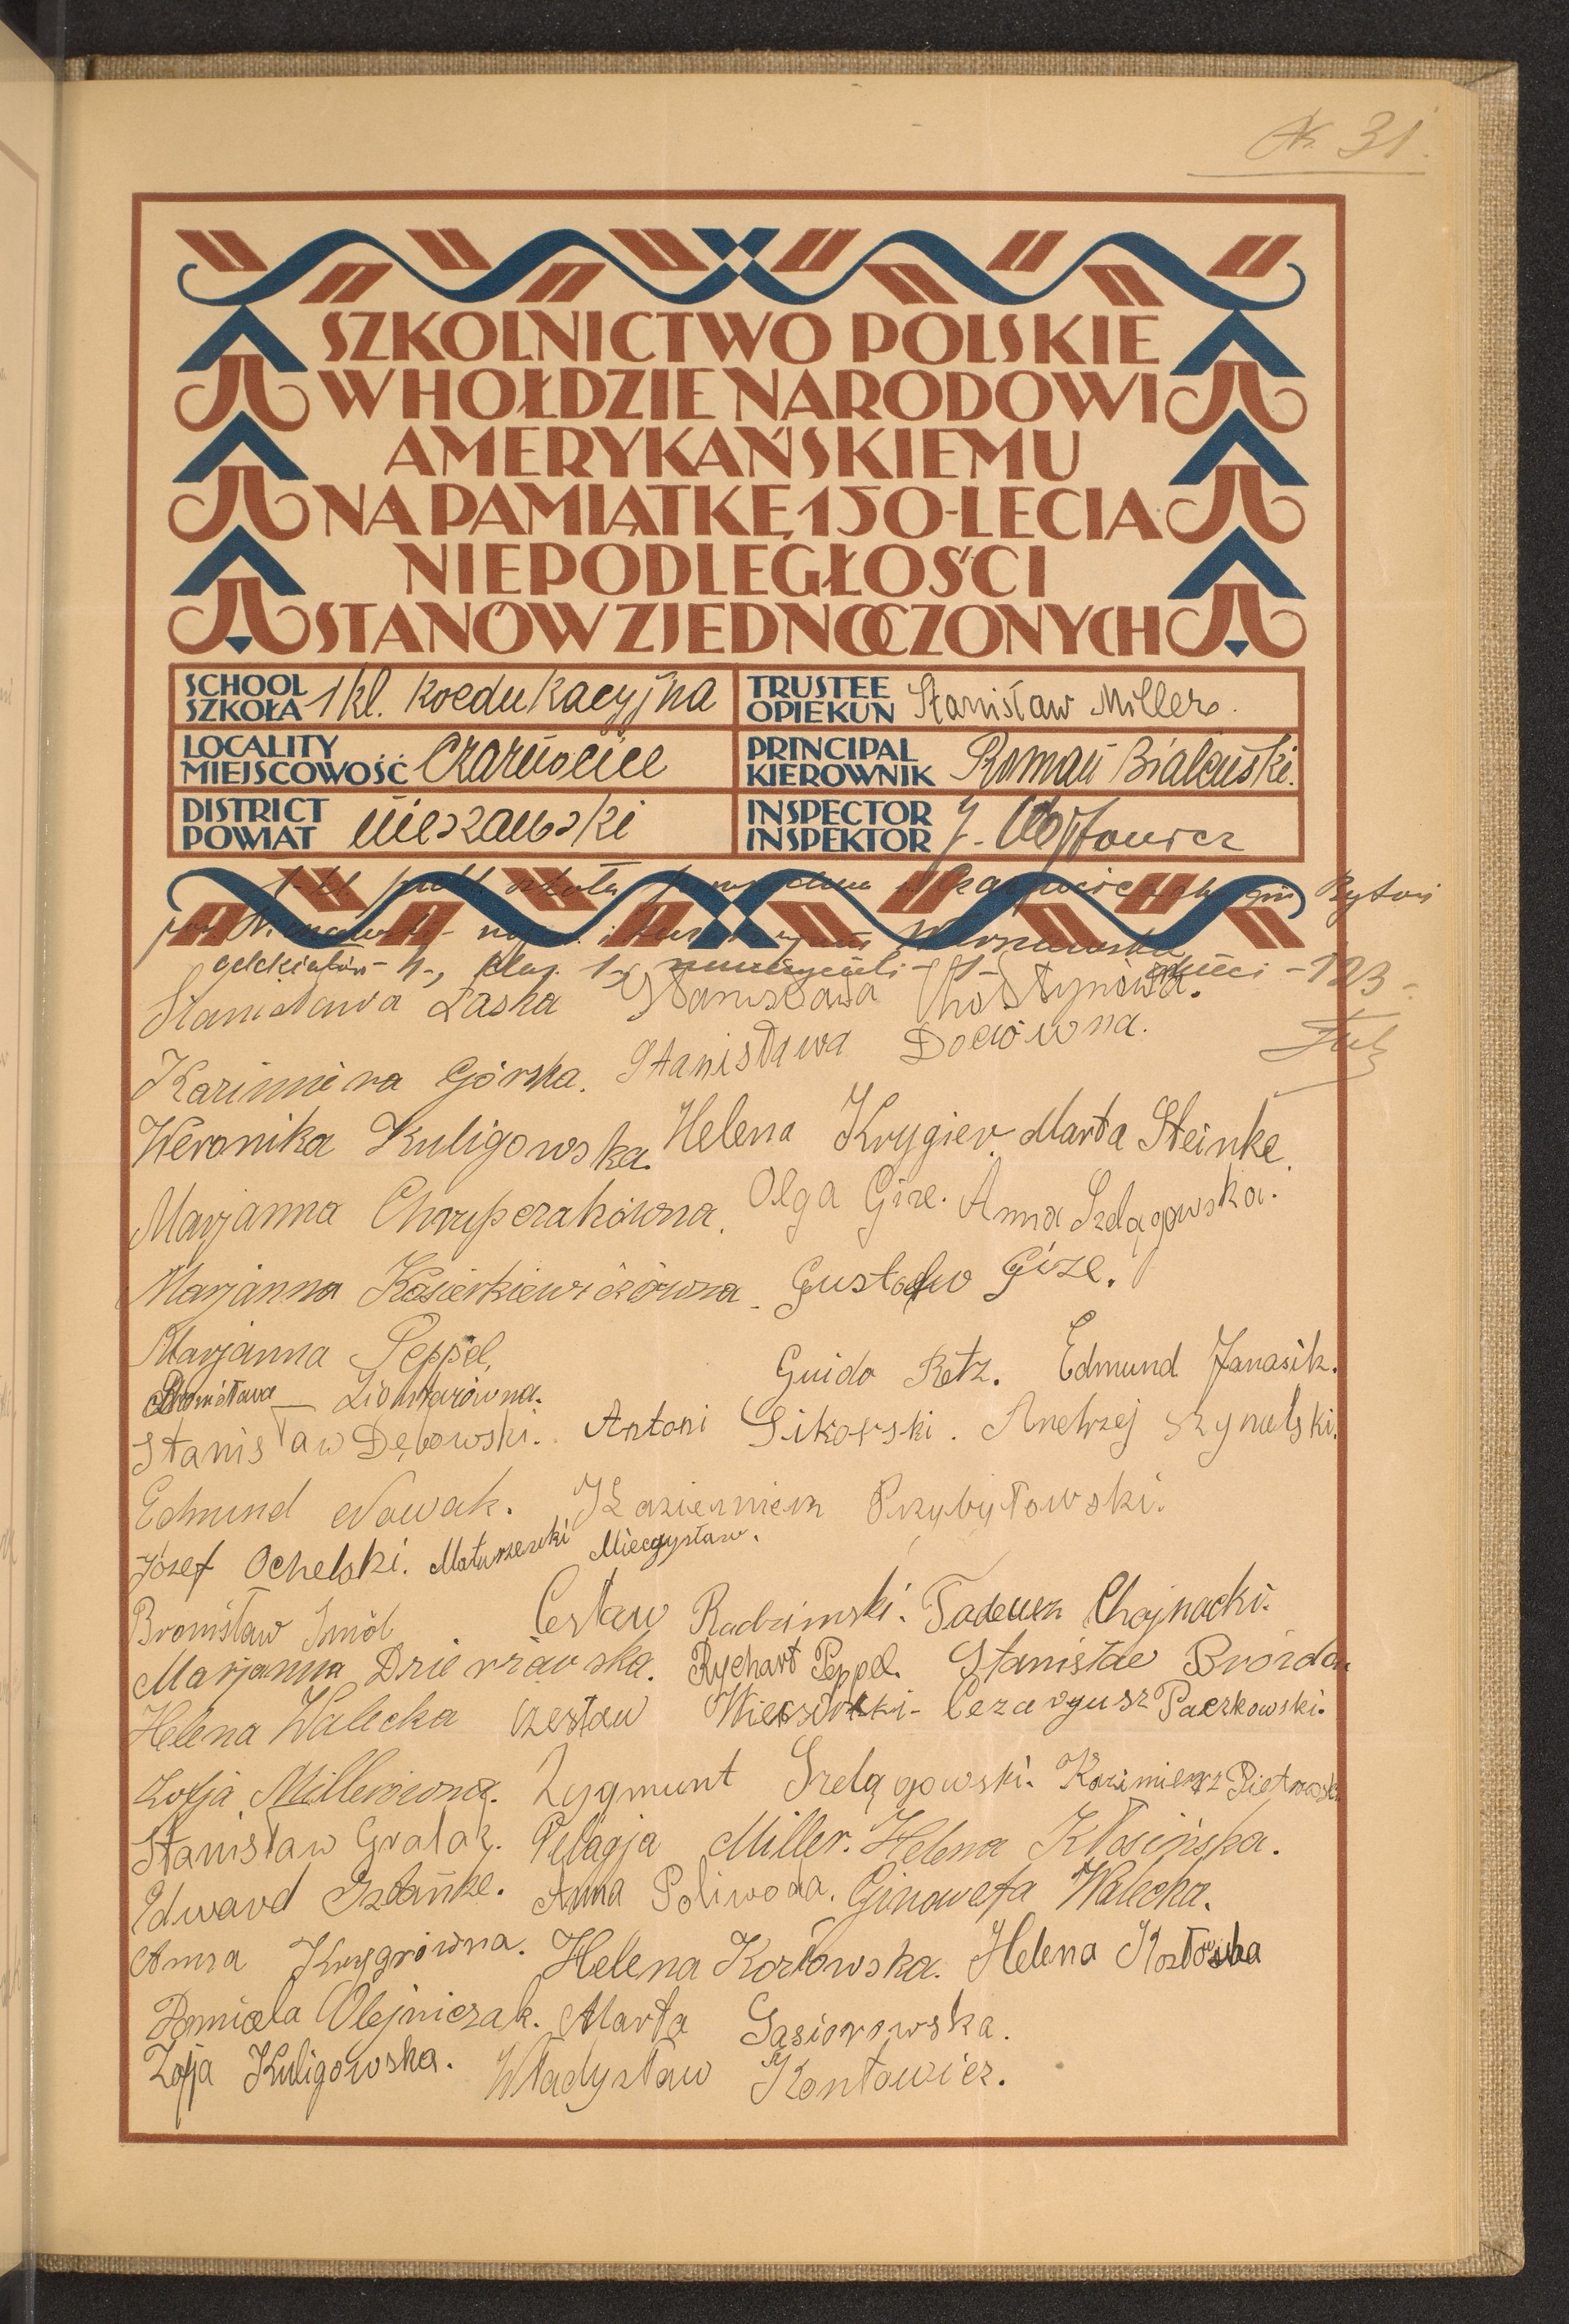 № 31.
SZKOLNICTWO POLSKIE
W HOŁDZIE NARODOWI
AMERYKAŃSKIEMU
NA PAMIĄTKĘ 150-LECIA
NIEPODLEGŁOŚCI
STANÓW ZJEDNOCZONYCH
SCHOOL SZKOŁA 1 kl. koedukacyjna
TRUSTEE OPIEKUN Stanisław Miller.
LOCALITY MIEJSCOWOŚĆ Czarnocice
PRINCIPAL KIEROWNIK Roman Bialeński.
DISTRICT POWIAT nieszawski
INSPECTOR INSPEKTOR J. Wojtowicz
1 kl. publ. szkoła powszechna gm Bytoń
pow Nieszawski Warszawska
oddziałów - 4, klas. 1, nauczycieli - 1 - dzieci - 123 -
Stanisława Laska Stanisława Chostynówa.
Kazimiera Górska. Stanisława Docówna.
Weronika Kuligowska. Helena Krygier. Marta Steinke.
Marjanna Chrupczakówna. Olga Gize. Anna Szelągowska.
Marjanna Kasierkiewiczówna. Gustaw Gize.
Marjanna Peppel,
Guido Retz. Edmund Janasik.
Bronisława Liontarówna.
Stanisław Dębowski. Antoni Sikorski. Andrzej Szynalski.
Edmund Nowak. Kazierniem Przybyłowski.
Józef Ochelski. Matuszewki Mieczysław.
Bronisław Smól Cesław Radzimski. Tadeusz Chojnacki.
Marjanna Dzierżawska. Rychart Peppel. Stanisław Brórda
Helena Walecka Czesław Cezaryusz Paczkowski.
Zofja Millerówna. Zygmunt Szelągowski. Kazimierz
Stanisław Gralak. Pelagja Miller. Helena Kłosińska.
Edward Sztanke. Anna Poliwoda. Ginowefa Walecka.
Anna Krygrówna. Helena Kozłowska. Helena Kozłowska
Domicela Olejniczak. Marta Gąsiorowska.
Zofja Kuligowska. Władysław Kontowicz.